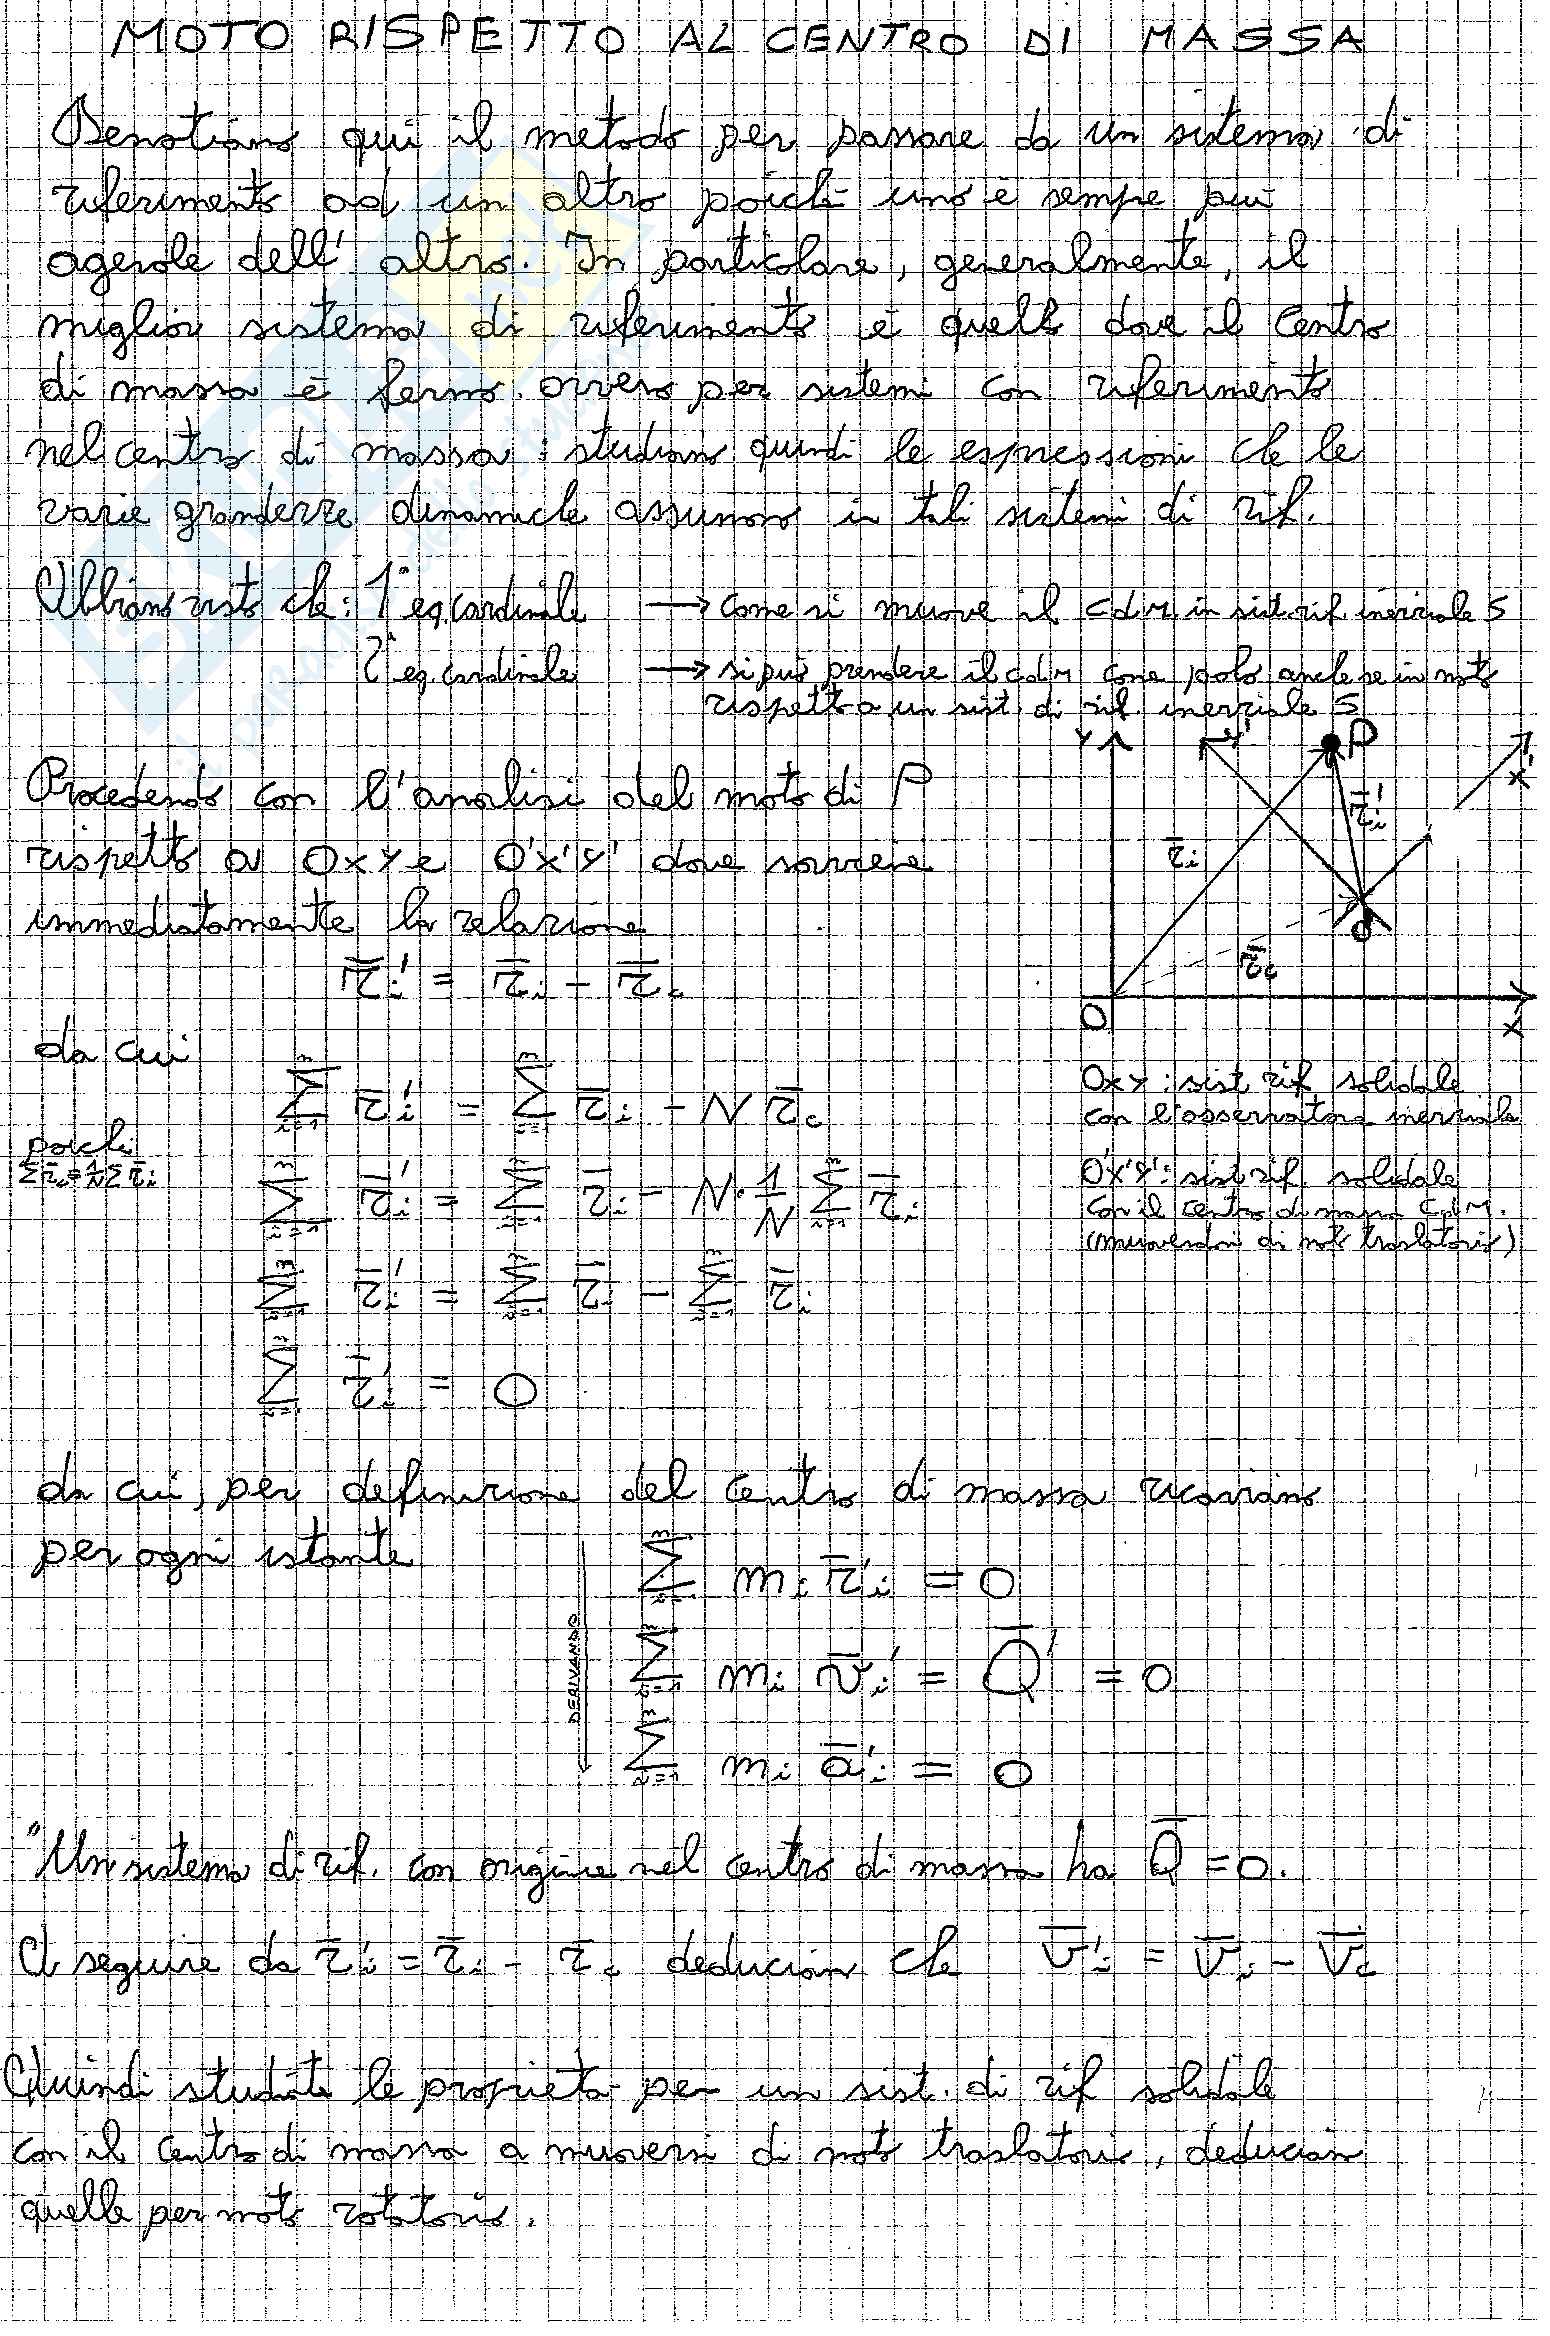 MOTO RISPETTO AL CENTRO DI MASSA
Denotiamo qui il metodo per passare da un sistema di
riferimento ad un altro poiché uno è sempre più
agevole dell'altro. In particolare, generalmente, il
miglior sistema di riferimento è quello dove il centro
di massa è fermo ovvero per sistemi con riferimento
nel centro di massa: studiamo quindi le espressioni che le
varie grandezze dinamiche assumono in tali sistemi di rif.
Abbiamo visto che: 1ª eq. cardinale → come si muove il CdM in sist. rif. inerziale S
2ª eq. cardinale → si può prendere il CdM come polo anche se in moto
rispetto a un sist. di rif. inerziale S
Procedendo con l'analisi del moto di P
rispetto a OXY e O'X'Y' dove sovviene
immediatamente la relazione
r̄i' = r̄i - r̄c
Y Y' P X'
r̄i r̄i'
O'
r̄c
O X
da cui
Σ r̄i' = Σ r̄i - N r̄c
poiché
Σ r̄c = 1/N Σ r̄i
Σ r̄i' = Σ r̄i - N · 1/N Σ r̄i
Σ r̄i' = Σ r̄i - Σ r̄i
Σ r̄i' = 0
OXY: sist rif solidale
con l'osservatore inerziale
O'X'Y': sist rif. solidale
con il centro di massa CdM.
(muovendosi di moto traslatorio)
da cui, per definizione del centro di massa ricaviamo
per ogni istante
Σ mi r̄i' = 0
DERIVANDO
Σ mi v̄i' = Q̄' = 0
Σ mi āi' = 0
"Un sistema di rif. con origine nel centro di massa ha Q̄ = 0.
A seguire da r̄i' = r̄i - r̄c deduciam che v̄i' = v̄i - v̄c
Quindi studiate le proprietà per un sist. di rif solidale
con il centro di massa a muoversi di moto traslatorio, deduciam
quelle per moto rotatorio.